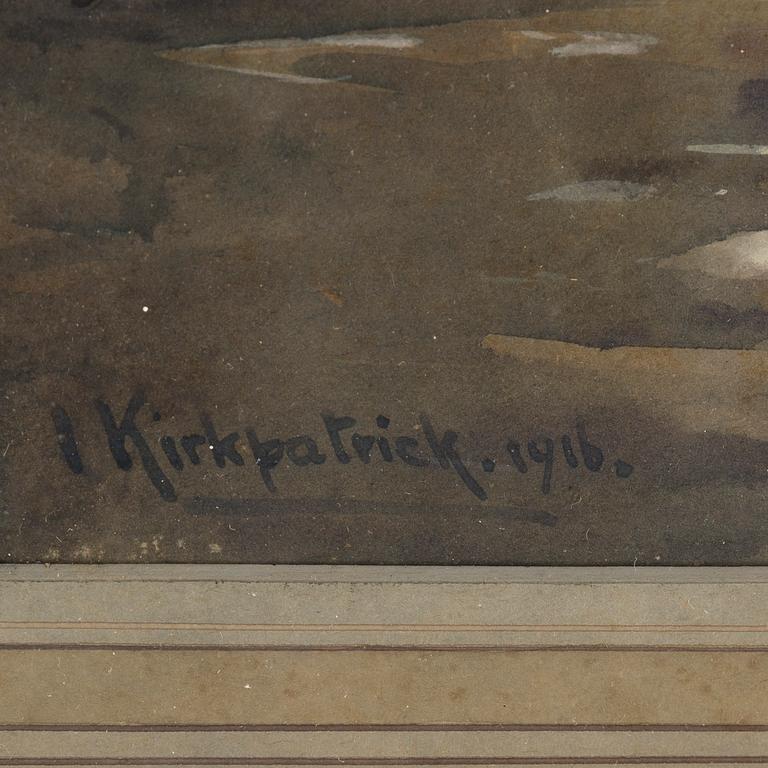 I Kirkpatrick. 1916.